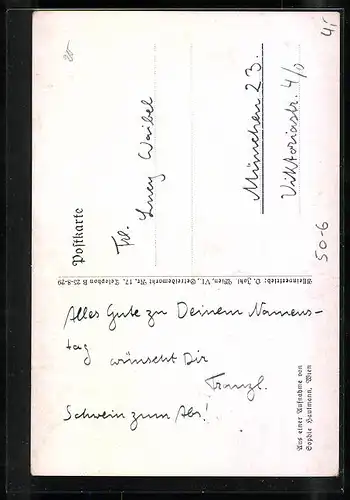 Postkarte
Frl. Lucy Waibel
München 23.
Viktoriastr. 4/0
Alleinvertrieb: O. Jahl, Wien, VI., Getreidemarkt Nr. 17, Telephon B 25-8-29
Alles Gute zu Deinem Namens-
tag
wünscht Dir
Franzl.
Schwein zum Abs!
Aus einer Aufnahme von
Sophie Hautmann, Wien
50-6
4,-
20